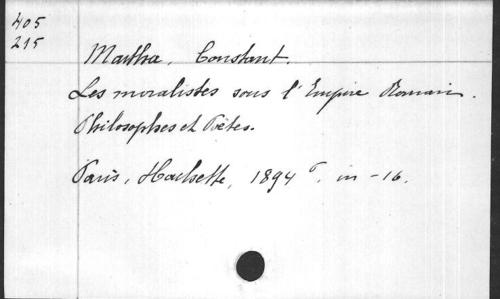 405
215
Martha, Constant.
Les moralistes sous l'Empire Romain.
Philosophes et Poètes.
Paris, Hachette, 1894⁶. in-16.